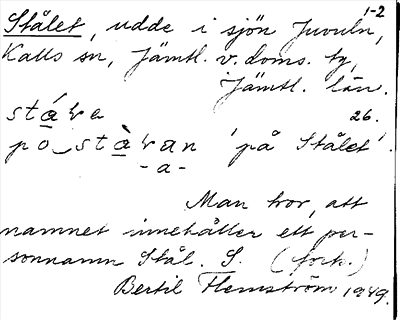 1-2
Stålet, udde i sjön Juvuln,
Kalls sn, Jämtl. v. doms. tg,
Jämtl. län.
26.
på Stålet'.
-a-
Man tror, att
namnet innehåller ett per-
sonnamn Stål. S. (forts.)
Bertil Flemström 1949.